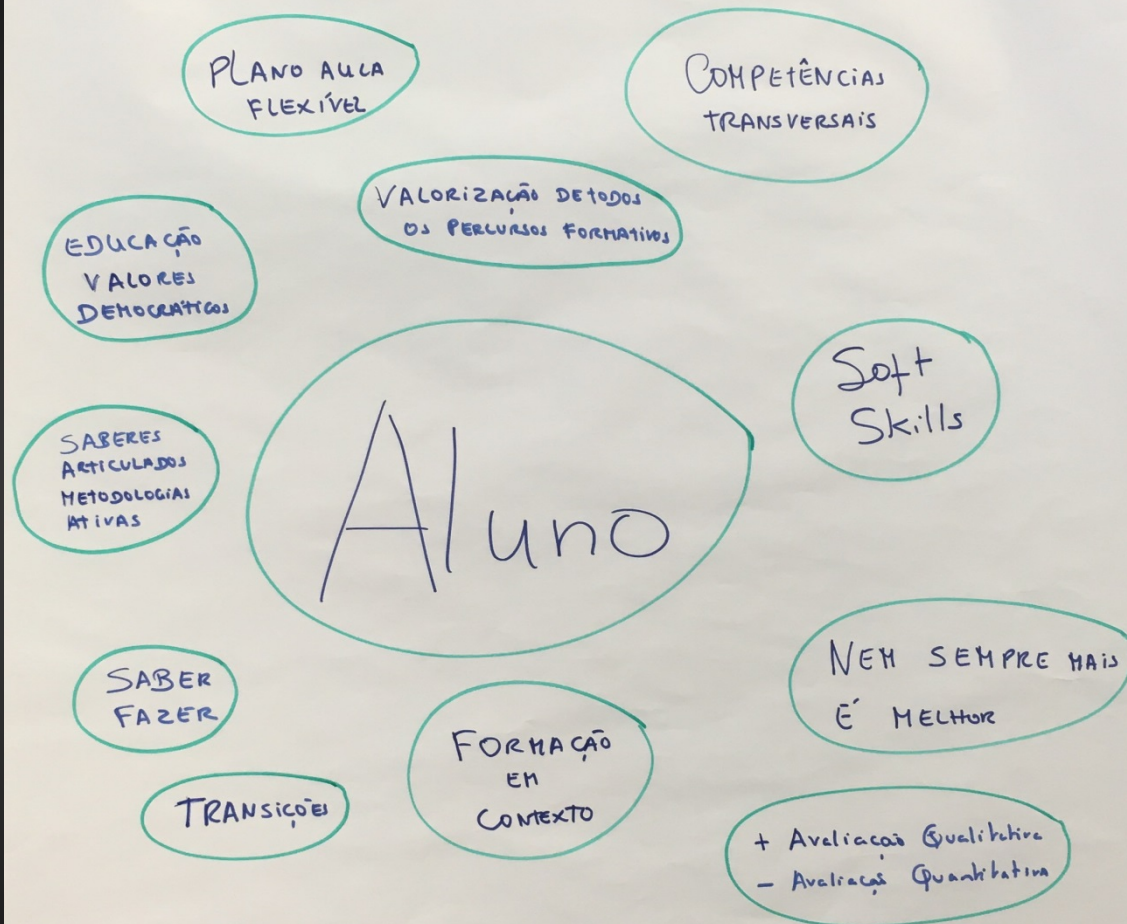 PLANO AULA
FLEXÍVEL
COMPETÊNCIAS
TRANSVERSAIS
VALORIZAÇÃO DE TODOS
OS PERCURSOS FORMATIVOS
EDUCAÇÃO
VALORES
DEMOCRÁTICOS
Soft
Skills
SABERES
ARTICULADOS
METODOLOGIAS
ATIVAS
Aluno
NEM SEMPRE MAIS
É MELHOR
SABER
FAZER
FORMAÇÃO
EM
CONTEXTO
TRANSIÇÕES
+ Avaliação Qualitativa
- Avaliação Quantitativa